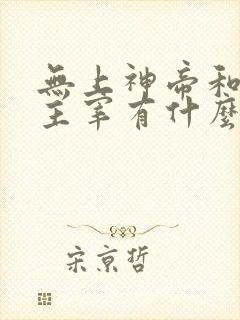 無上神帝和
主宰有什麼
宋京哲